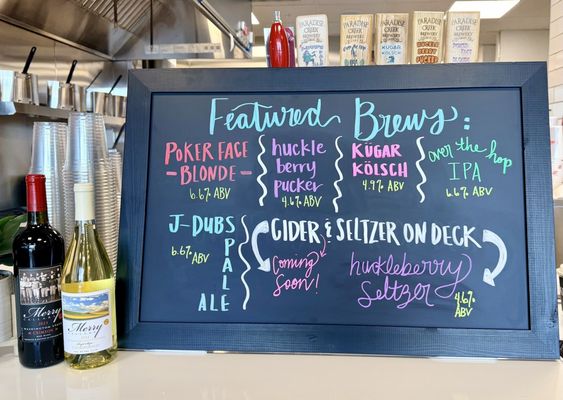 PARADISE
PARADISE
PARADISE
PARADISE
PARADISE
Featured Brews:
POKER FACE
-BLONDE-
6.6% ABV
huckle
berry
pucker
4.6% ABV
KÜGAR
KÖLSCH
4.9% ABV
over the hop
IPA
6.6% ABV
J-DUBS
PALE
ALE
6.6% ABV
CIDER & SELTZER ON DECK
Coming
Soon!
huckleberry
Seltzer
4.6%
ABV
Merry
Merry